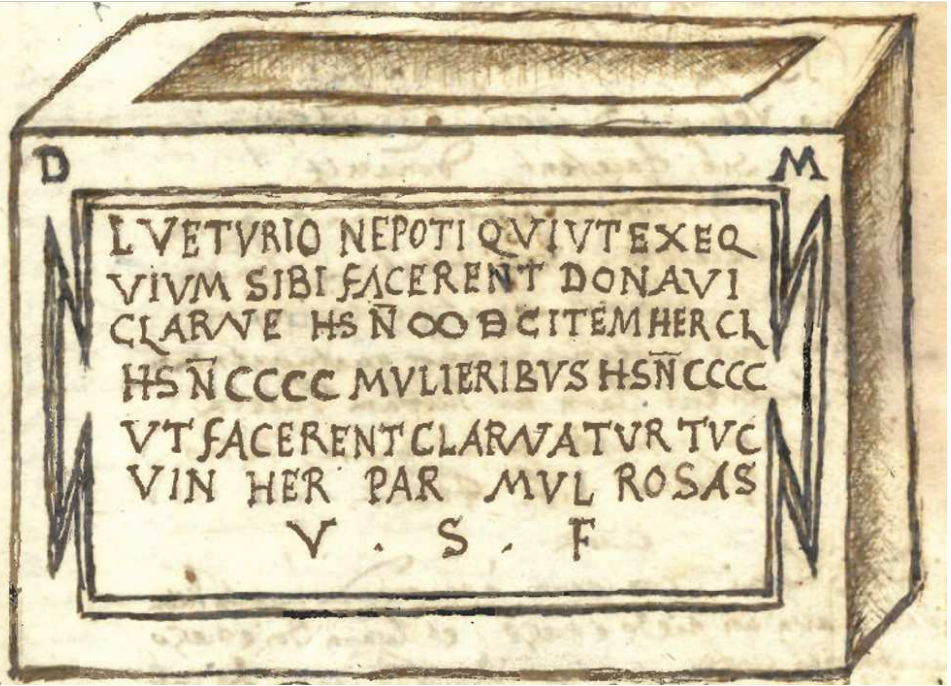 D M
L VETVRIO NEPOTI QVIVTEXEQ
VIVM SIBI FACERENT DONAVI
CLARNE HS N̅ ∞ DC ITEM HER CL
HS N̅ CCCC MVLIERIBVS HS N̅ CCCC
VT FACERENT CLARNATVR TVC
VIN HER PAR MVL ROSAS
V . S . F